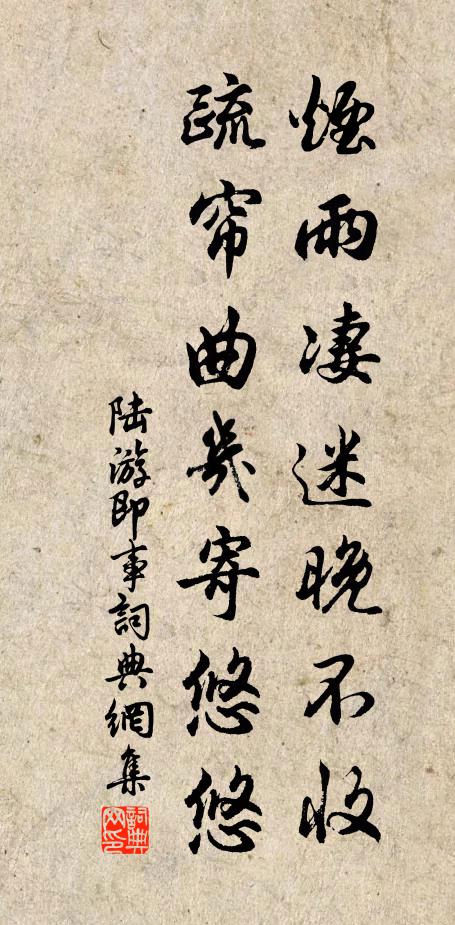 煙雨凄迷晚不收
疏帘曲几寄悠悠
陆游即事詞典網集
詞典网印